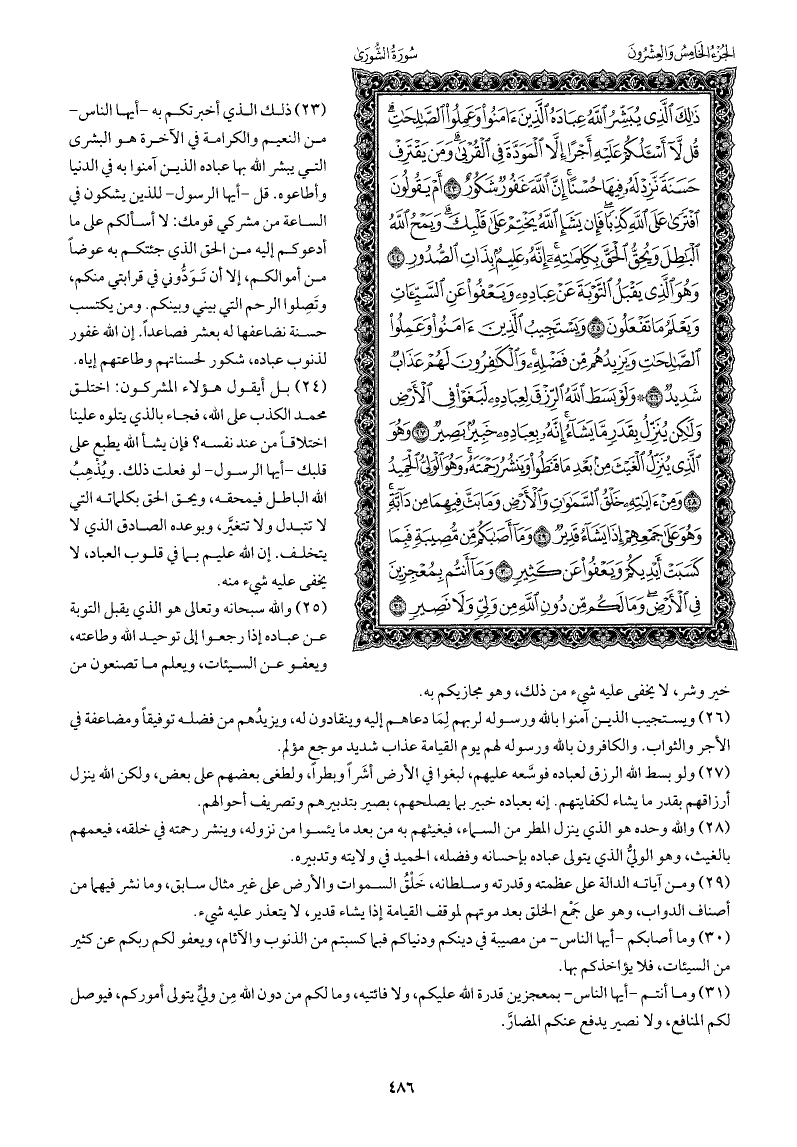 الجزء الخامس والعشرون
سورة الشورى
ذَٰلِكَ ٱلَّذِى يُبَشِّرُ ٱللَّهُ عِبَادَهُ ٱلَّذِينَ ءَامَنُوا۟ وَعَمِلُوا۟ ٱلصَّٰلِحَٰتِ ۗ
قُل لَّآ أَسْـَٔلُكُمْ عَلَيْهِ أَجْرًا إِلَّا ٱلْمَوَدَّةَ فِى ٱلْقُرْبَىٰ ۗ وَمَن يَقْتَرِفْ
حَسَنَةً نَّزِدْ لَهُۥ فِيهَا حُسْنًا ۚ إِنَّ ٱللَّهَ غَفُورٌ شَكُورٌ ٢٣ أَمْ يَقُولُونَ
ٱفْتَرَىٰ عَلَى ٱللَّهِ كَذِبًا ۖ فَإِن يَشَإِ ٱللَّهُ يَخْتِمْ عَلَىٰ قَلْبِكَ ۗ وَيَمْحُ ٱللَّهُ
ٱلْبَٰطِلَ وَيُحِقُّ ٱلْحَقَّ بِكَلِمَٰتِهِۦٓ ۚ إِنَّهُۥ عَلِيمٌۢ بِذَاتِ ٱلصُّدُورِ ٢٤
وَهُوَ ٱلَّذِى يَقْبَلُ ٱلتَّوْبَةَ عَنْ عِبَادِهِۦ وَيَعْفُوا۟ عَنِ ٱلسَّيِّـَٔاتِ
وَيَعْلَمُ مَا تَفْعَلُونَ ٢٥ وَيَسْتَجِيبُ ٱلَّذِينَ ءَامَنُوا۟ وَعَمِلُوا۟
ٱلصَّٰلِحَٰتِ وَيَزِيدُهُم مِّن فَضْلِهِۦ ۚ وَٱلْكَٰفِرُونَ لَهُمْ عَذَابٌ
شَدِيدٌ ٢٦ ۞ وَلَوْ بَسَطَ ٱللَّهُ ٱلرِّزْقَ لِعِبَادِهِۦ لَبَغَوْا۟ فِى ٱلْأَرْضِ
وَلَٰكِن يُنَزِّلُ بِقَدَرٍ مَّا يَشَآءُ ۚ إِنَّهُۥ بِعِبَادِهِۦ خَبِيرٌۢ بَصِيرٌ ٢٧ وَهُوَ
ٱلَّذِى يُنَزِّلُ ٱلْغَيْثَ مِنۢ بَعْدِ مَا قَنَطُوا۟ وَيَنشُرُ رَحْمَتَهُۥ ۚ وَهُوَ ٱلْوَلِىُّ ٱلْحَمِيدُ
٢٨ وَمِنْ ءَايَٰتِهِۦ خَلْقُ ٱلسَّمَٰوَٰتِ وَٱلْأَرْضِ وَمَا بَثَّ فِيهِمَا مِن دَآبَّةٍ ۚ
وَهُوَ عَلَىٰ جَمْعِهِمْ إِذَا يَشَآءُ قَدِيرٌ ٢٩ وَمَآ أَصَٰبَكُم مِّن مُّصِيبَةٍ فَبِمَا
كَسَبَتْ أَيْدِيكُمْ وَيَعْفُوا۟ عَن كَثِيرٍ ٣٠ وَمَآ أَنتُم بِمُعْجِزِينَ
فِى ٱلْأَرْضِ ۖ وَمَا لَكُم مِّن دُونِ ٱللَّهِ مِن وَلِىٍّ وَلَا نَصِيرٍ ٣١
(٢٣) ذلك الذي أخبرتكم به -أيها الناس-
من النعيم والكرامة في الآخرة هو البشرى
التي يبشر الله بها عباده الذين آمنوا به في الدنيا
وأطاعوه. قل -أيها الرسول- للذين يشكون في
الساعة من مشركي قومك: لا أسألكم على ما
أدعوكم إليه من الحق الذي جئتكم به عوضاً
من أموالكم، إلا أن تَوَدُّوني في قرابتي منكم،
وتَصِلوا الرحم التي بيني وبينكم. ومن يكتسب
حسنة نضاعفها له بعشر فصاعداً. إن الله غفور
لذنوب عباده، شكور لحسناتهم وطاعتهم إياه.
(٢٤) بل أيقول هؤلاء المشركون: اختلق
محمد الكذب على الله، فجاء بالذي يتلوه علينا
اختلاقاً من عند نفسه؟ فإن يشأ الله يطبع على
قلبك -أيها الرسول- لو فعلت ذلك. ويُذْهِبُ
الله الباطل فيمحقه، ويحق الحق بكلماته التي
لا تتبدل ولا تتغيَّر، وبوعده الصادق الذي لا
يتخلف. إن الله عليم بما في قلوب العباد، لا
يخفى عليه شيء منه.
(٢٥) والله سبحانه وتعالى هو الذي يقبل التوبة
عن عباده إذا رجعوا إلى توحيد الله وطاعته،
ويعفو عن السيئات، ويعلم ما تصنعون من
خير وشر، لا يخفى عليه شيء من ذلك، وهو مجازيكم به.
(٢٦) ويستجيب الذين آمنوا بالله ورسوله لربهم لِمَا دعاهم إليه وينقادون له، ويزيدُهم من فضله توفيقاً ومضاعفة في
الأجر والثواب. والكافرون بالله ورسوله لهم يوم القيامة عذاب شديد موجع مؤلم.
(٢٧) ولو بسط الله الرزق لعباده فوسَّعه عليهم، لبغوا في الأرض أَشَراً وبطراً، ولطغى بعضهم على بعض، ولكن الله ينزل
أرزاقهم بقدر ما يشاء لكفايتهم. إنه بعباده خبير بما يصلحهم، بصير بتدبيرهم وتصريف أحوالهم.
(٢٨) والله وحده هو الذي ينزل المطر من السماء، فيغيثهم به من بعد ما يئسوا من نزوله، وينشر رحمته في خلقه، فيعمهم
بالغيث، وهو الوليُّ الذي يتولى عباده بإحسانه وفضله، الحميد في ولايته وتدبيره.
(٢٩) ومن آياته الدالة على عظمته وقدرته وسلطانه، خَلْقُ السموات والأرض على غير مثال سابق، وما نشر فيهما من
أصناف الدواب، وهو على جَمْع الخلق بعد موتهم لموقف القيامة إذا يشاء قدير، لا يتعذر عليه شيء.
(٣٠) وما أصابكم -أيها الناس- من مصيبة في دينكم ودنياكم فبما كسبتم من الذنوب والآثام، ويعفو لكم ربكم عن كثير
من السيئات، فلا يؤاخذكم بها.
(٣١) وما أنتم -أيها الناس- بمعجزين قدرة الله عليكم، ولا فائتيه، وما لكم من دون الله مِن وليٍّ يتولى أموركم، فيوصل
لكم المنافع، ولا نصير يدفع عنكم المضارَّ.
٤٨٦